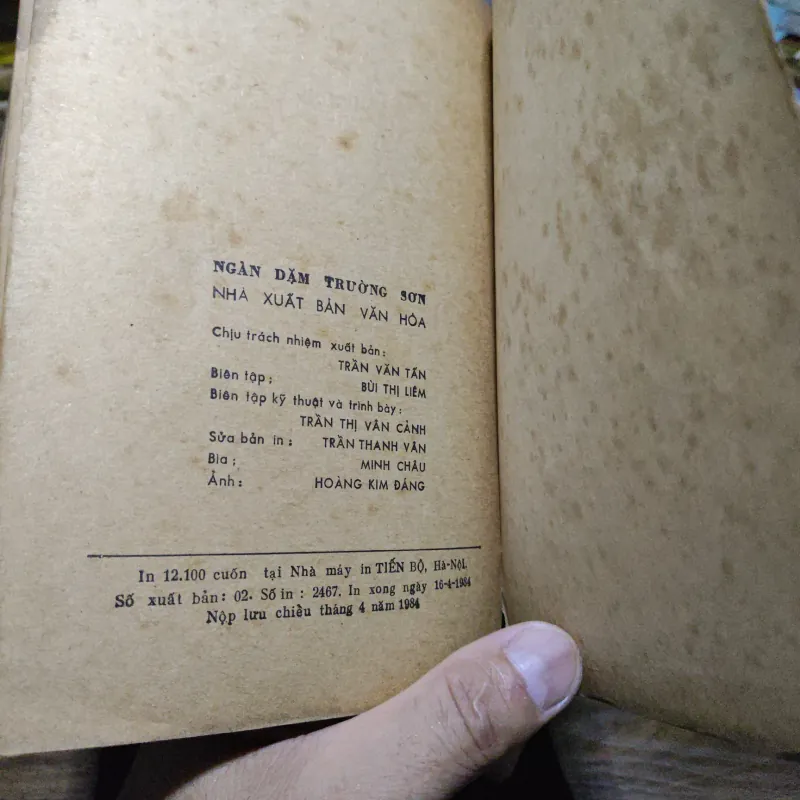 NGÀN DẶM TRƯỜNG SƠN
NHÀ XUẤT BẢN VĂN HÓA
Chịu trách nhiệm xuất bản:
TRẦN VĂN TẤN
Biên tập; BÙI THỊ LIÊM
Biên tập kỹ thuật và trình bày:
TRẦN THỊ VÂN CẢNH
Sửa bản in: TRẦN THANH VÂN
Bìa; MINH CHÂU
Ảnh: HOÀNG KIM ĐÁNG
In 12.100 cuốn tại Nhà máy in TIẾN BỘ, Hà-Nội.
Số xuất bản: 02. Số in: 2467. In xong ngày 16-4-1984
Nộp lưu chiều tháng 4 năm 1984